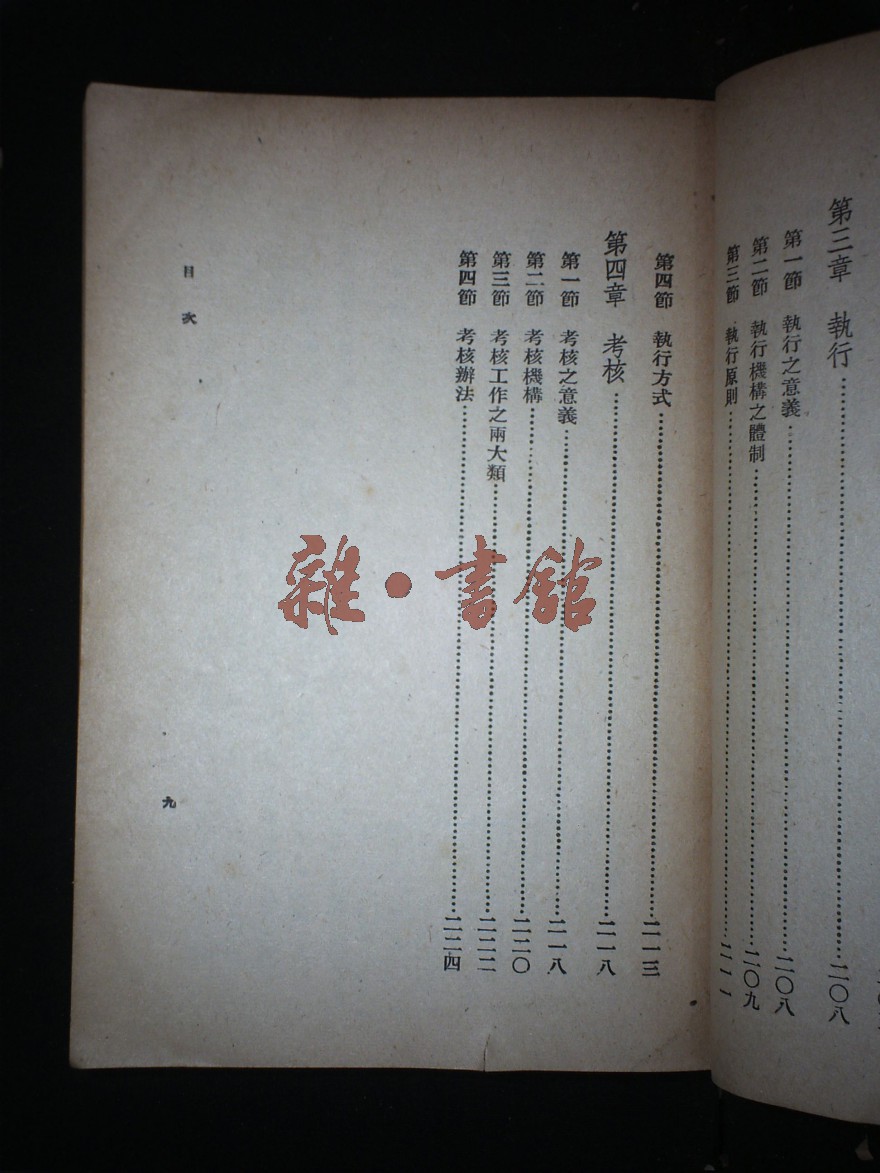 第三章 執行……二〇八
第一節 執行之意義……二〇八
第二節 執行機構之體制……二〇九
第三節 執行原則……二一一
第四節 執行方式……二一三
第四章 考核……二一八
第一節 考核之意義……二一八
第二節 考核機構……二二〇
第三節 考核工作之兩大類……二二二
第四節 考核辦法……二二四
目次
九
雜·書館